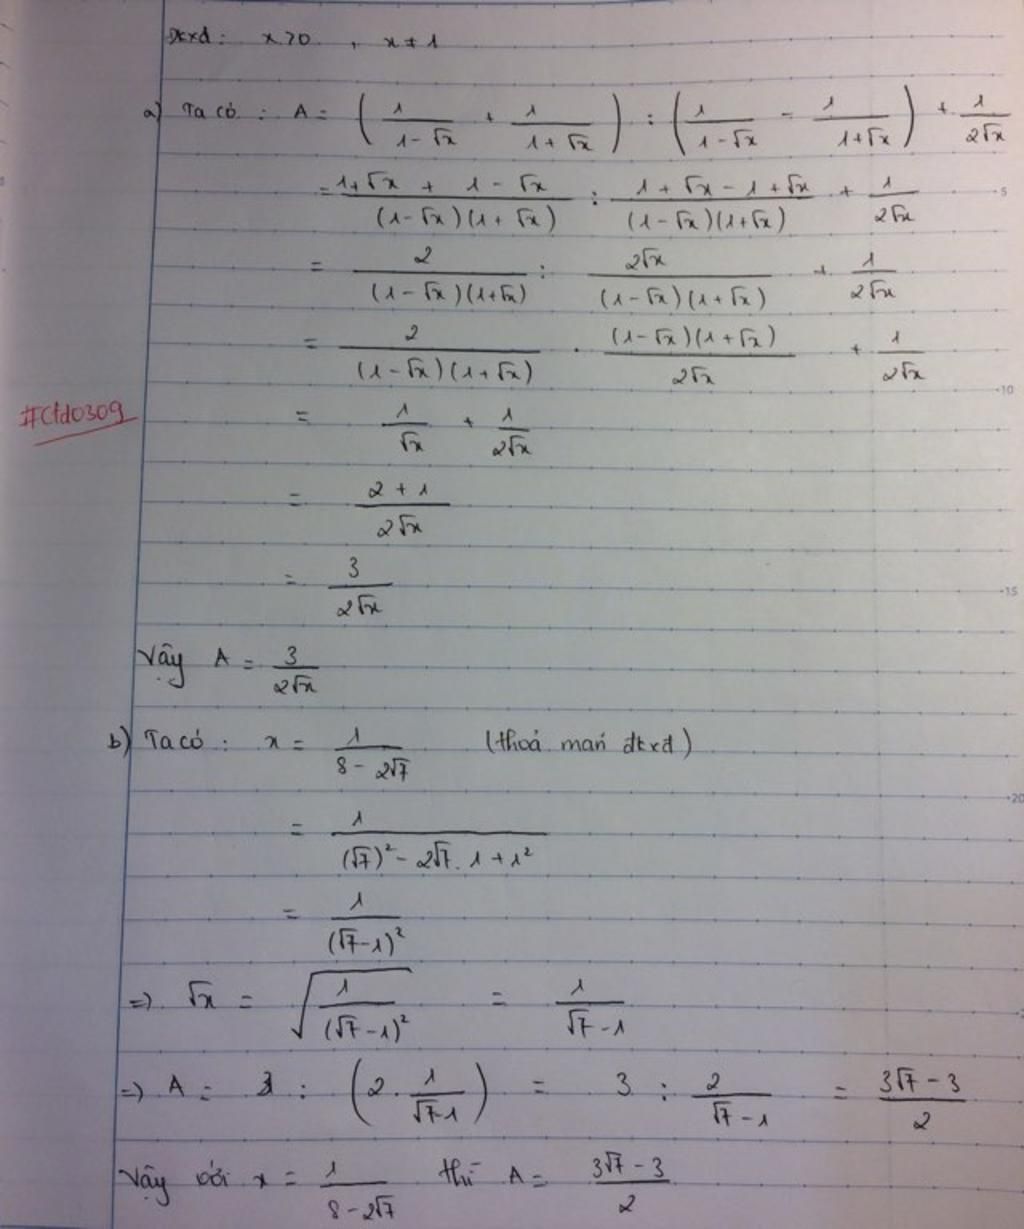 đkxđ: x > 0, x ≠ 1
a) Ta có: A = (1/(1-√x) + 1/(1+√x)) : (1/(1-√x) - 1/(1+√x)) + 1/(2√x)
= (1+√x + 1-√x)/((1-√x)(1+√x)) : (1+√x-1+√x)/((1-√x)(1+√x)) + 1/(2√x)
= 2/((1-√x)(1+√x)) : 2√x/((1-√x)(1+√x)) + 1/(2√x)
= 2/((1-√x)(1+√x)) . ((1-√x)(1+√x))/(2√x) + 1/(2√x)
#Ctd0309
= 1/√x + 1/(2√x)
= (2+1)/(2√x)
= 3/(2√x)
Vậy A = 3/(2√x)
b) Ta có: x = 1/(8-2√7) (thoả mãn đkxđ)
= 1/((√7)²-2√7.1+1²)
= 1/(√7-1)²
=> √x = √(1/(√7-1)²) = 1/(√7-1)
=> A = 3 : (2.1/(√7-1)) = 3 : 2/(√7-1) = (3√7-3)/2
Vậy với x = 1/(8-2√7) thì A = (3√7-3)/2
5
10
15
20